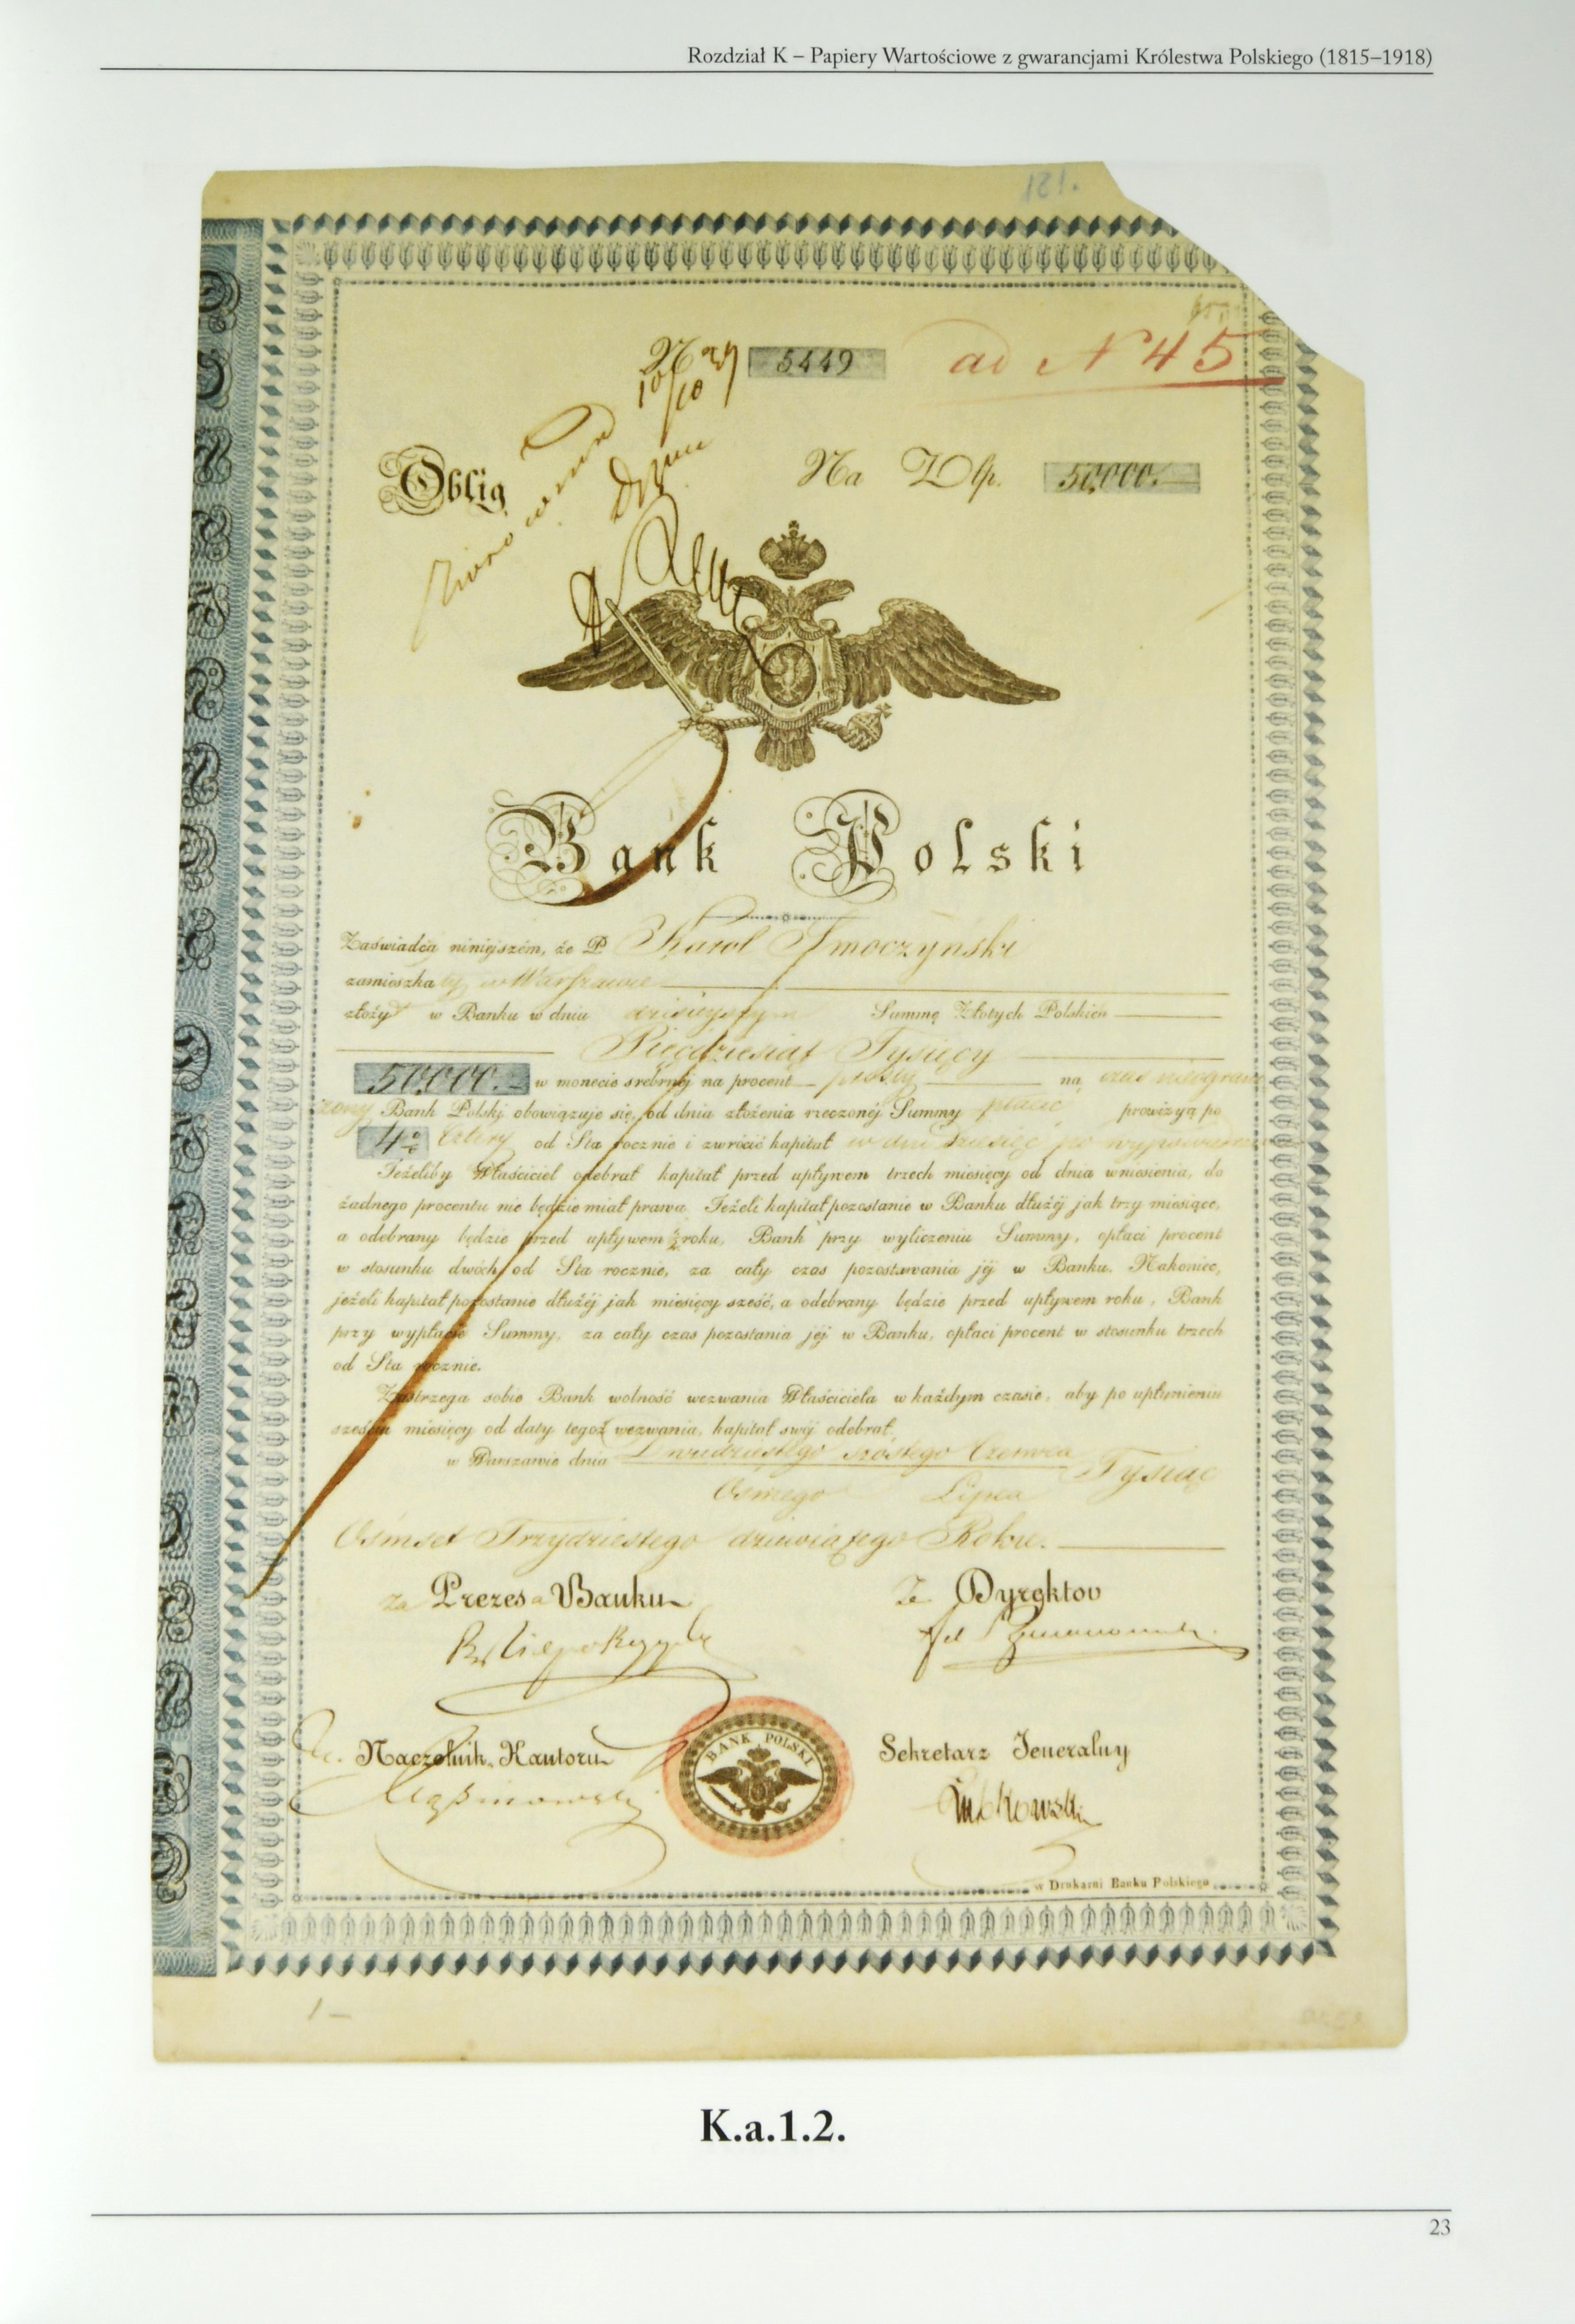 Rozdział K – Papiery Wartościowe z gwarancjami Królestwa Polskiego (1815–1918)
121.
No 5449
ad N 45
Oblig
Na Złp. 50,000.
Bank Polski
Zaświadcza niniejszém, że P Karol Smoczyński
zamieszkały w Warszawie
złożył w Banku w dniu dzisiejszym Summę Złotych Polskich
Pięćdziesiąt Tysięcy
50,000. w monecie srebrnéj na procent prosty na czas nieograni
czony Bank Polski obowiązuje się, od dnia złożenia rzeczonéj Summy płacić prowizyą po
4% cztery od Sta rocznie i zwrócić kapitał w dni dziesięć po wypowiedzeniu
Jeżeliby Właściciel odebrał kapitał przed upływem trzech miesięcy od dnia wniesienia, do
żadnego procentu nie będzie miał prawa. Jeżeli kapitał pozostanie w Banku dłużéj jak trzy miesiące,
a odebrany będzie przed upływem ½ roku, Bank przy wyliczeniu Summy, opłaci procent
w stosunku dwóch od Sta rocznie, za cały czas pozostawania jéj w Banku. Nakoniec,
jeżeli kapitał pozostanie dłużéj jak miesięcy sześć, a odebrany będzie przed upływem roku, Bank
przy wypłacie Summy, za cały czas pozostania jéj w Banku, opłaci procent w stosunku trzech
od Sta rocznie.
Zastrzega sobie Bank wolność wezwania Właściciela w każdym czasie, aby po upłynieniu
sześciu miesięcy od daty tegoż wezwania, kapitał swój odebrał.
w Warszawie dnia Dwudziestego szóstego Czerwca Tysiąc
Osmego Lipca
Ośmset Trzydziestego dziewiątego Roku.
za Prezesa Banku
Dyrektor
Naczelnik Kantoru
BANK POLSKI
Sekretarz Jeneralny
Łubkowski
w Drukarni Banku Polskiego
K.a.1.2.
23